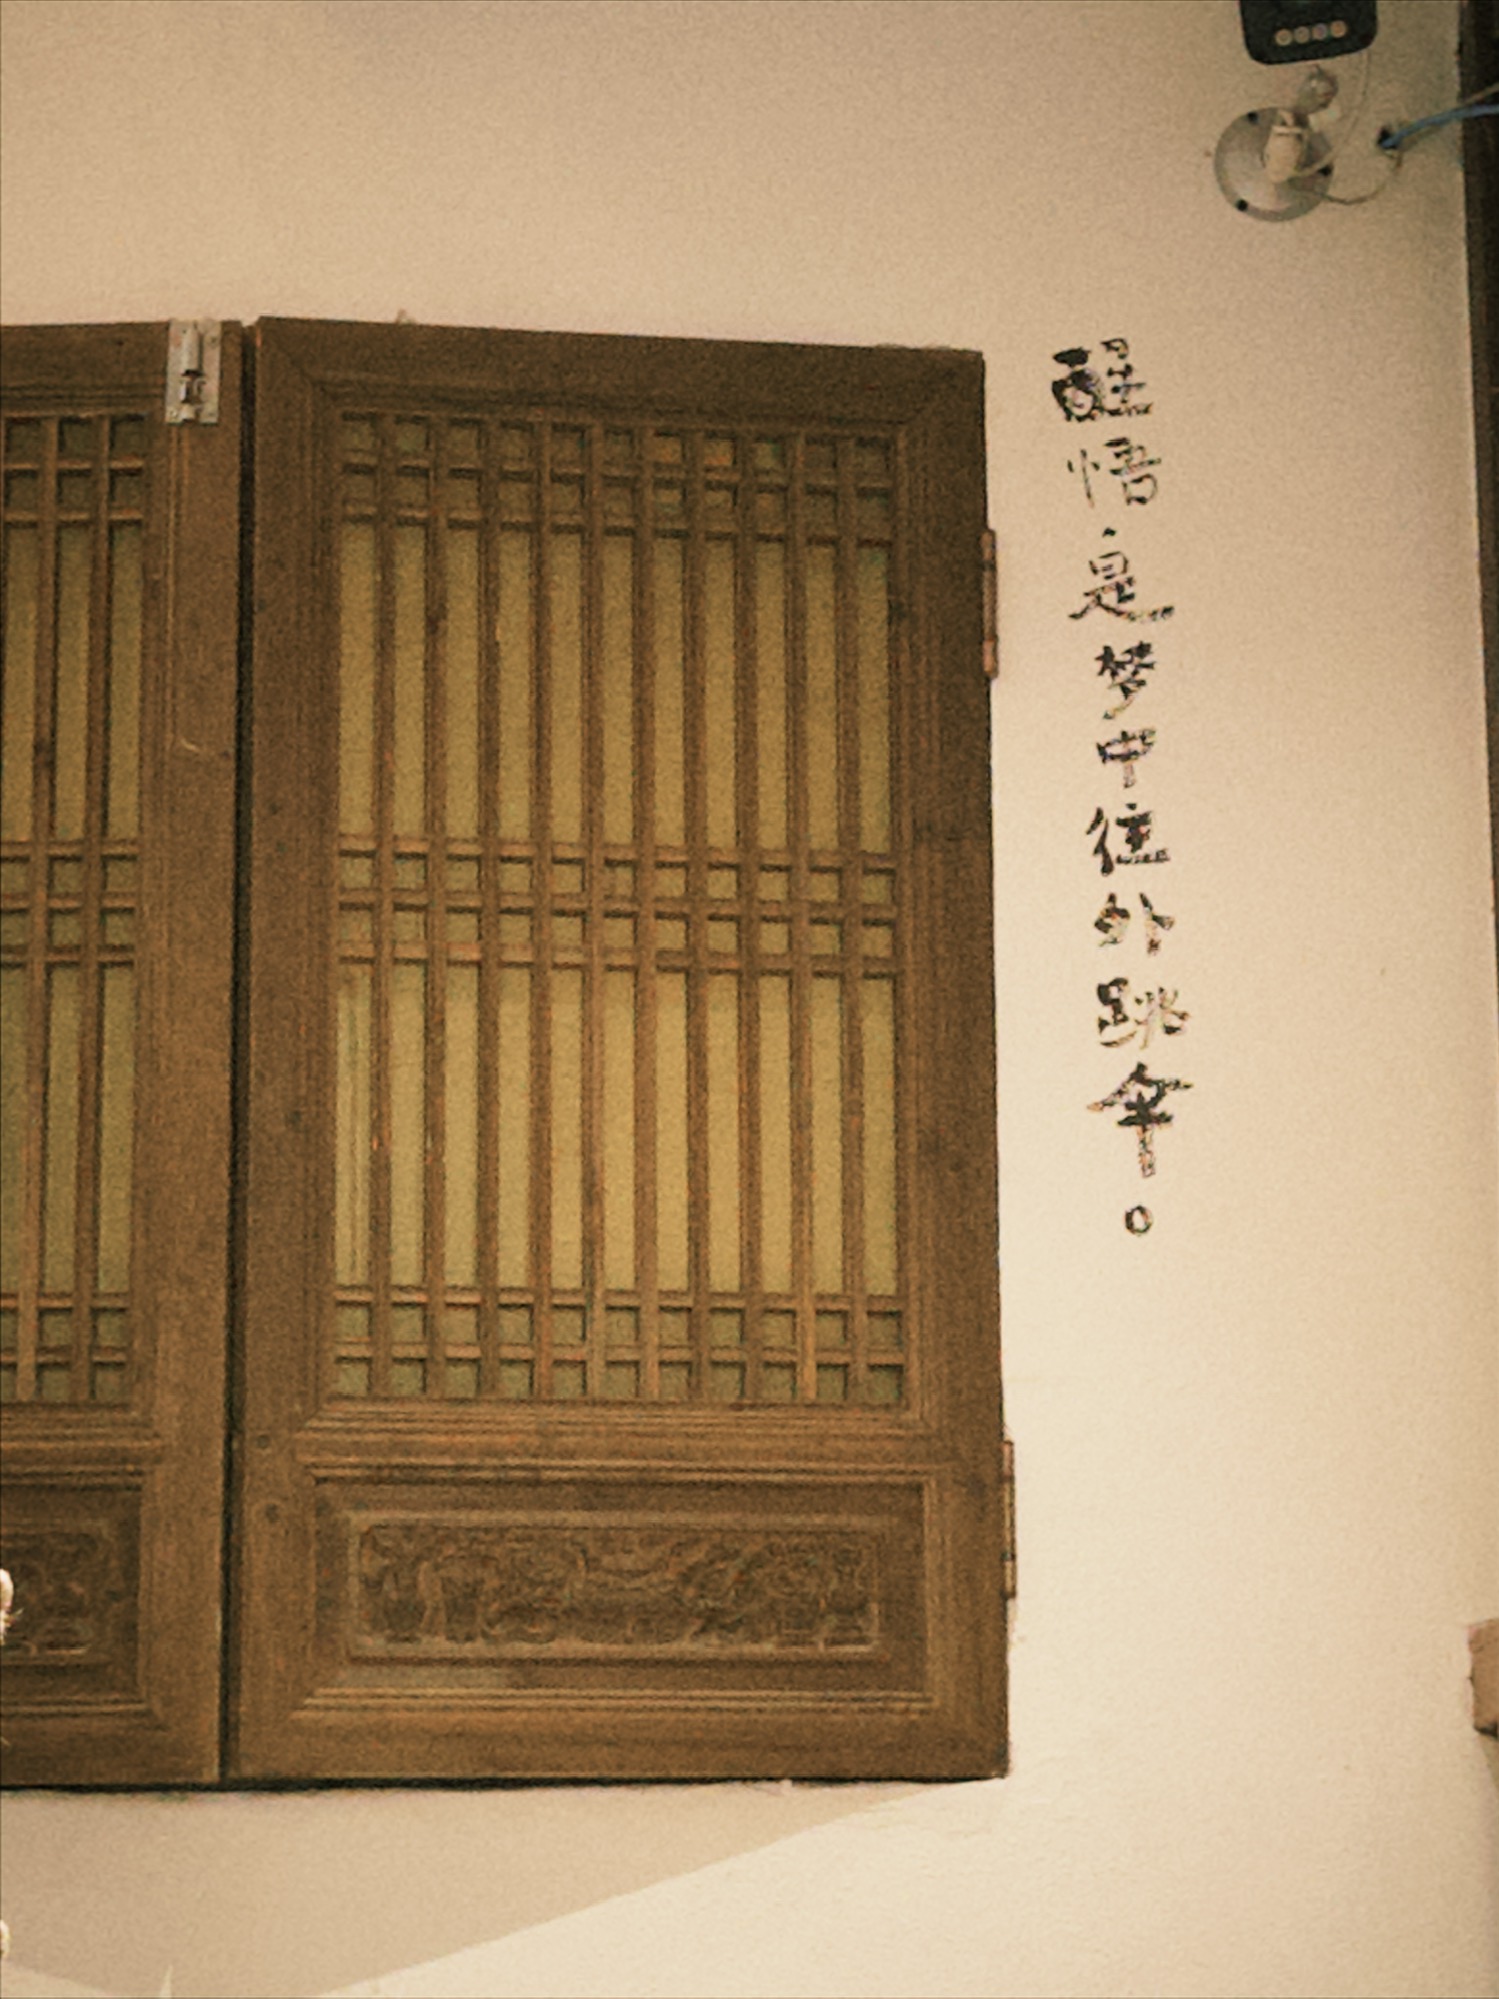 醒悟是梦中往外跳伞。